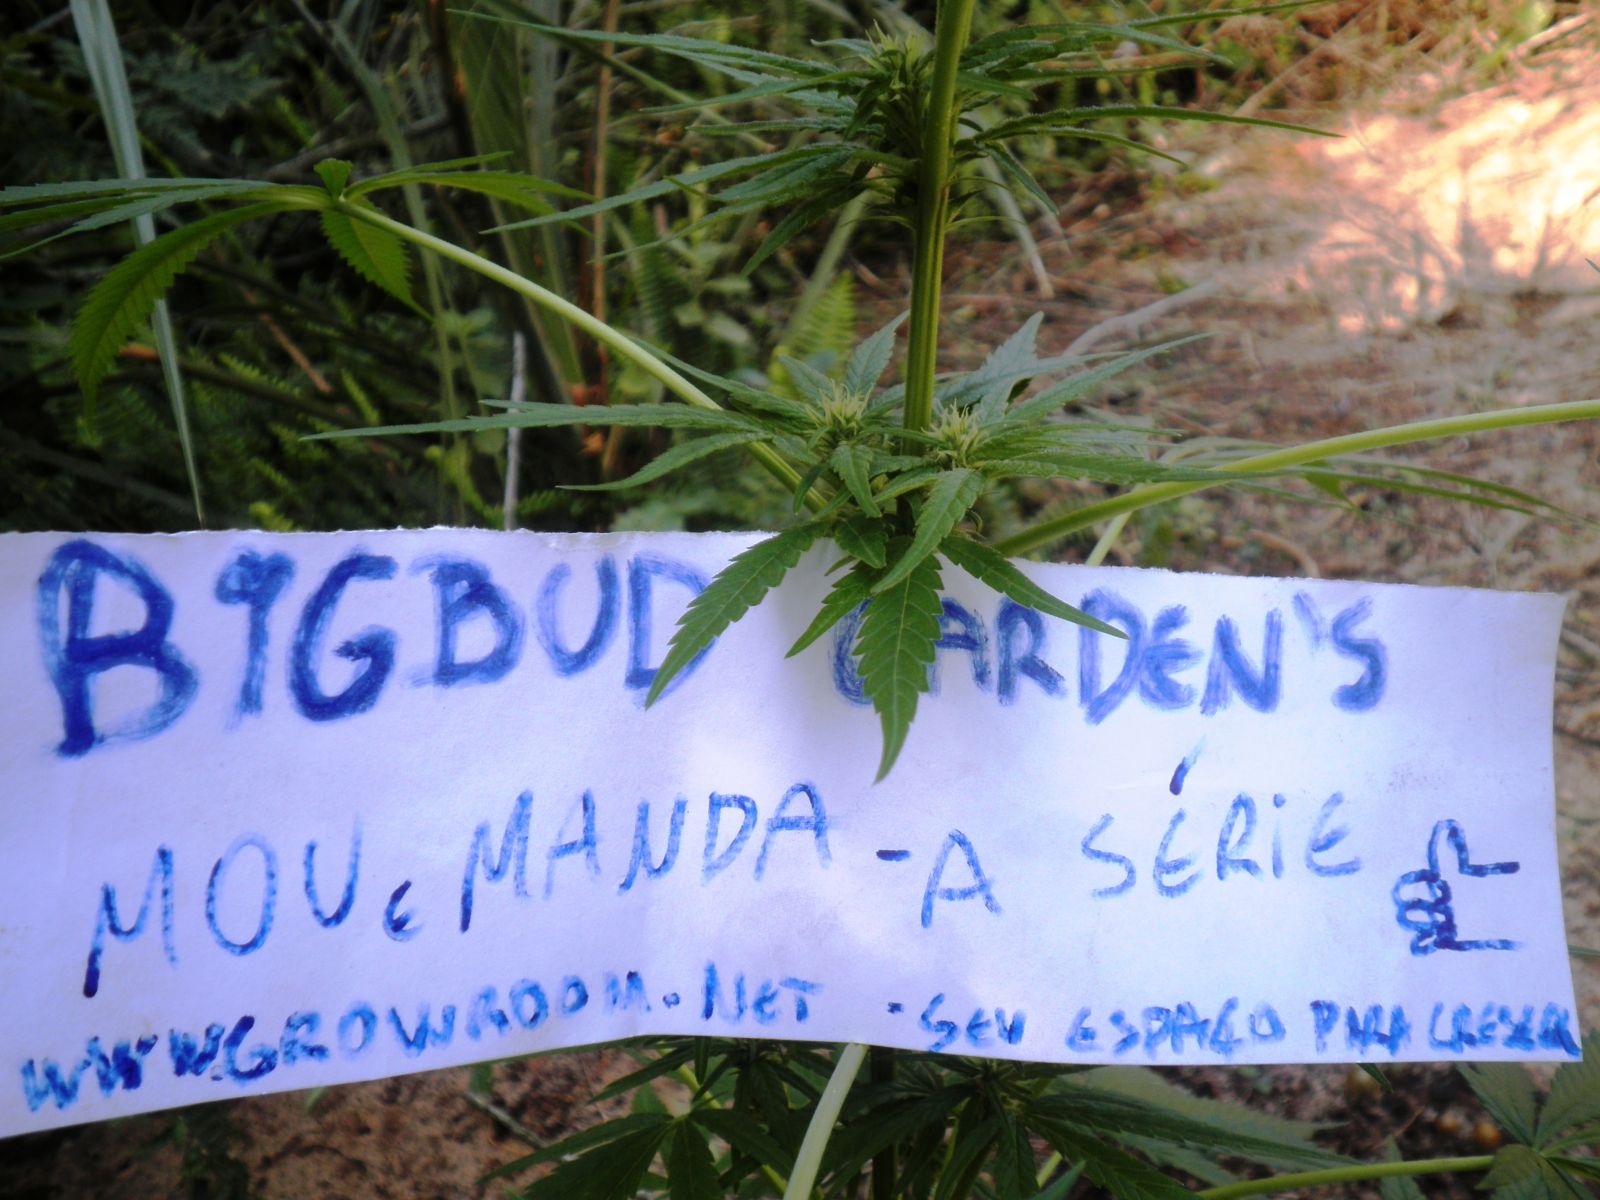 BiGBUD GARDEN'S
MOVe MANDA - A SÉRiE
WWW.GROWROOM.NET - SEU ESPAÇO PARA CRESCER